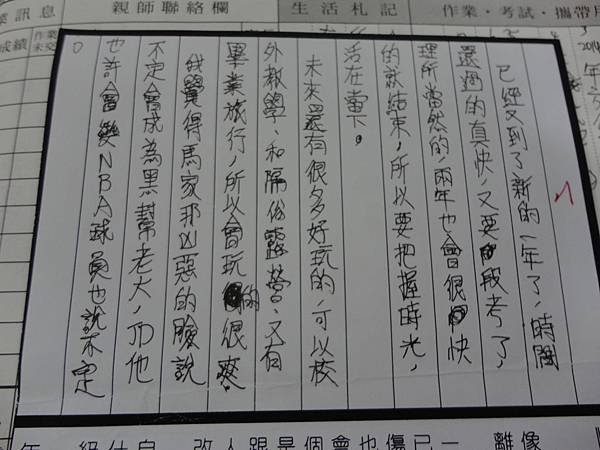 訊息
親師聯絡欄
生活札記
作業·考試·攜帶用
成績
作業
未交
已經又到了新的一年了,時間
還過的真快,又要段考了,
理所當然的,兩年也會很快
的就結束,所以要把握時光,
活在當下。
未來還有很多好玩的,可以校
外教學、和隔宿露營、又有
畢業旅行,所以會玩的很爽。
我覺得馬家那凶惡的臉說
不定會成為黑幫老大,而他
也許會變NBA球員也說不定
。
年 級什自 改人跟是個會也傷已一 離像